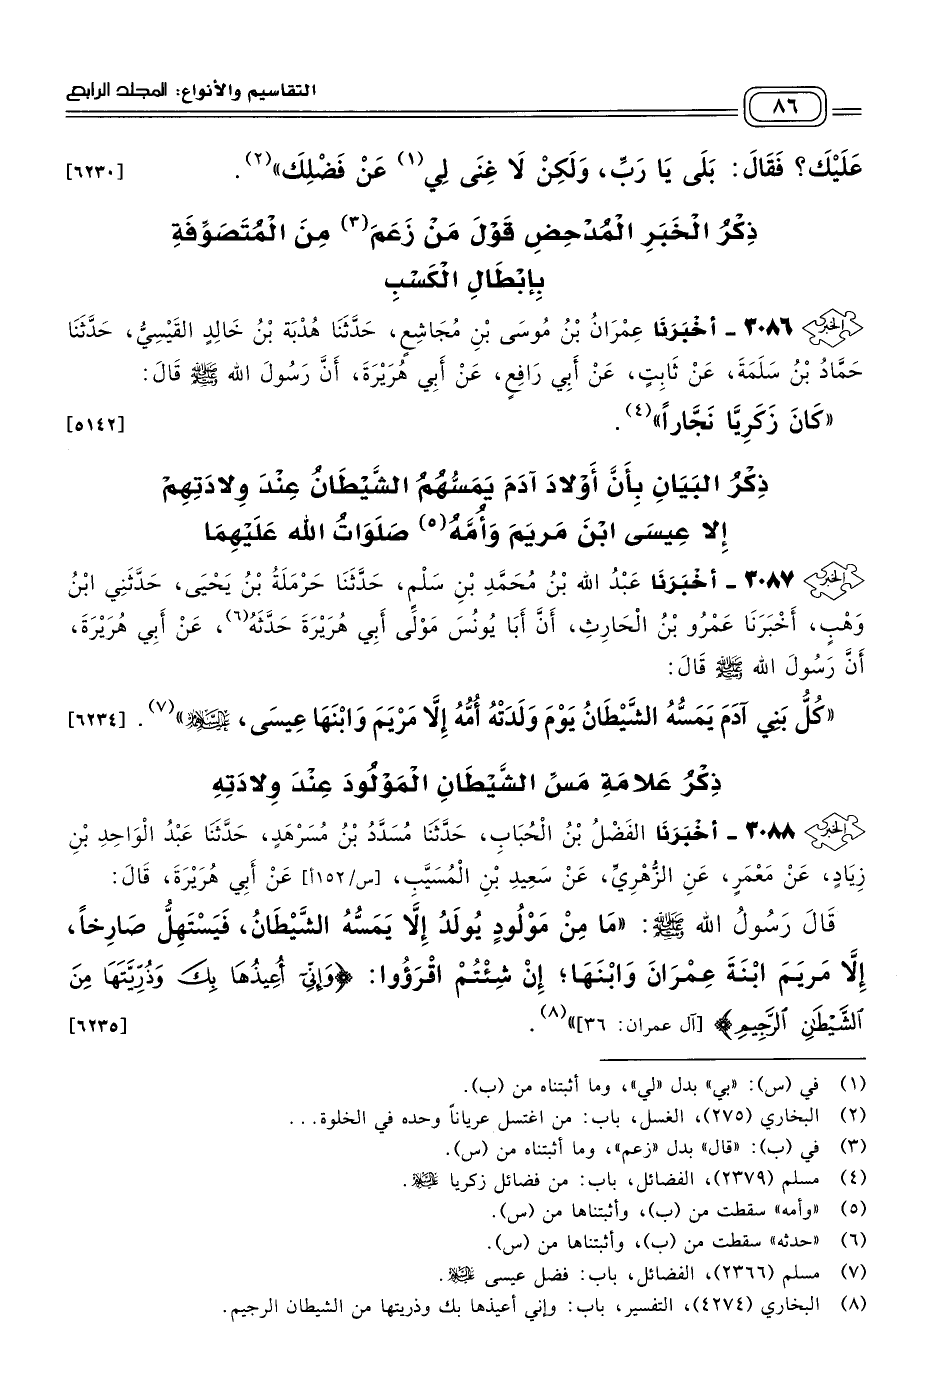 ٨٦ التقاسيم والأنواع: المجلد الرابع
عَلَيْكَ؟ فَقَالَ: بَلَى يَا رَبِّ، وَلَكِنْ لَا غِنَى لِي(١) عَنْ فَضْلِكَ»(٢). [٦٢٣٠]
ذِكْرُ الْخَبَرِ الْمُدْحِضِ قَوْلَ مَنْ زَعَمَ(٣) مِنَ الْمُتَصَوِّفَةِ
بِإِبْطَالِ الْكَسْبِ
الخبر ٣٠٨٦ ـ أخْبَرَنَا عِمْرَانُ بْنُ مُوسَى بْنِ مُجَاشِعٍ، حَدَّثَنَا هُدْبَة بْنُ خَالِدٍ القَيْسِيُّ، حَدَّثَنَا
حَمَّادُ بْنُ سَلَمَةَ، عَنْ ثَابِتٍ، عَنْ أَبِي رَافِعٍ، عَنْ أَبِي هُرَيْرَةَ، أَنَّ رَسُولَ الله ﷺ قَالَ:
«كَانَ زَكَرِيَّا نَجَّاراً»(٤). [٥١٤٢]
ذِكْرُ البَيَانِ بِأَنَّ أَوْلادَ آدَمَ يَمَسُّهُمُ الشَّيْطَانُ عِنْدَ وِلادَتِهِمْ
إِلا عِيسَى ابْنَ مَرِيَمَ وَأُمَّهُ(٥) صَلَوَاتُ الله عَلَيْهِمَا
الخبر ٣٠٨٧ ـ أخْبَرَنَا عَبْدُ الله بْنُ مُحَمَّدِ بْنِ سَلْمٍ، حَدَّثَنَا حَرْمَلَةُ بْنُ يَحْيَى، حَدَّثَنِي ابْنُ
وَهْبٍ، أَخْبَرَنَا عَمْرُو بْنُ الْحَارِثِ، أَنَّ أَبَا يُونُسَ مَوْلَى أَبِي هُرَيْرَةَ حَدَّثَهُ(٦)، عَنْ أَبِي هُرَيْرَةَ،
أَنَّ رَسُولَ الله ﷺ قَالَ:
«كُلُّ بَنِي آدَمَ يَمَسُّهُ الشَّيْطَانُ يَوْمَ وَلَدَتْهُ أُمُّهُ إِلَّا مَرْيَمَ وَابْنَهَا عِيسَى، عَلَيْهِمَا السَّلَام»(٧). [٦٢٣٤]
ذِكْرُ عَلامَةِ مَسِّ الشَّيْطَانِ الْمَوْلُودَ عِنْدَ وِلادَتِهِ
الخبر ٣٠٨٨ ـ أخْبَرَنَا الفَضْلُ بْنُ الْحُبَابِ، حَدَّثَنَا مُسَدَّدُ بْنُ مُسَرْهَدٍ، حَدَّثَنَا عَبْدُ الْوَاحِدِ بْنِ
زِيَادٍ، عَنْ مَعْمَرٍ، عَنِ الزُّهْرِيِّ، عَنْ سَعِيدِ بْنِ الْمُسَيَّبِ، [س/١٥٢أ] عَنْ أَبِي هُرَيْرَةَ، قَالَ:
قَالَ رَسُولُ الله ﷺ: «مَا مِنْ مَوْلُودٍ يُولَدُ إِلَّا يَمَسُّهُ الشَّيْطَانُ، فَيَسْتَهِلُّ صَارِخاً،
إِلَّا مَرِيَمَ ابْنَةَ عِمْرَانَ وَابْنَهَا؛ إِنْ شِئْتُمْ اقْرَؤُوا: ﴿وَإِنِّيٓ أُعِيذُهَا بِكَ وَذُرِّيَّتَهَا مِنَ
ٱلشَّيْطَٰنِ ٱلرَّجِيمِ﴾ [آل عمران: ٣٦]»(٨). [٦٢٣٥]
(١) في (س): «بي» بدل «لي»، وما أثبتناه من (ب).
(٢) البخاري (٢٧٥)، الغسل، باب: من اغتسل عرياناً وحده في الخلوة...
(٣) في (ب): «قال» بدل «زعم»، وما أثبتناه من (س).
(٤) مسلم (٢٣٧٩)، الفضائل، باب: من فضائل زكريا عليه السلام.
(٥) «وأمه» سقطت من (ب)، وأثبتناها من (س).
(٦) «حدثه» سقطت من (ب)، وأثبتناها من (س).
(٧) مسلم (٢٣٦٦)، الفضائل، باب: فضل عيسى عليه السلام.
(٨) البخاري (٤٢٧٤)، التفسير، باب: وإني أعيذها بك وذريتها من الشيطان الرجيم.